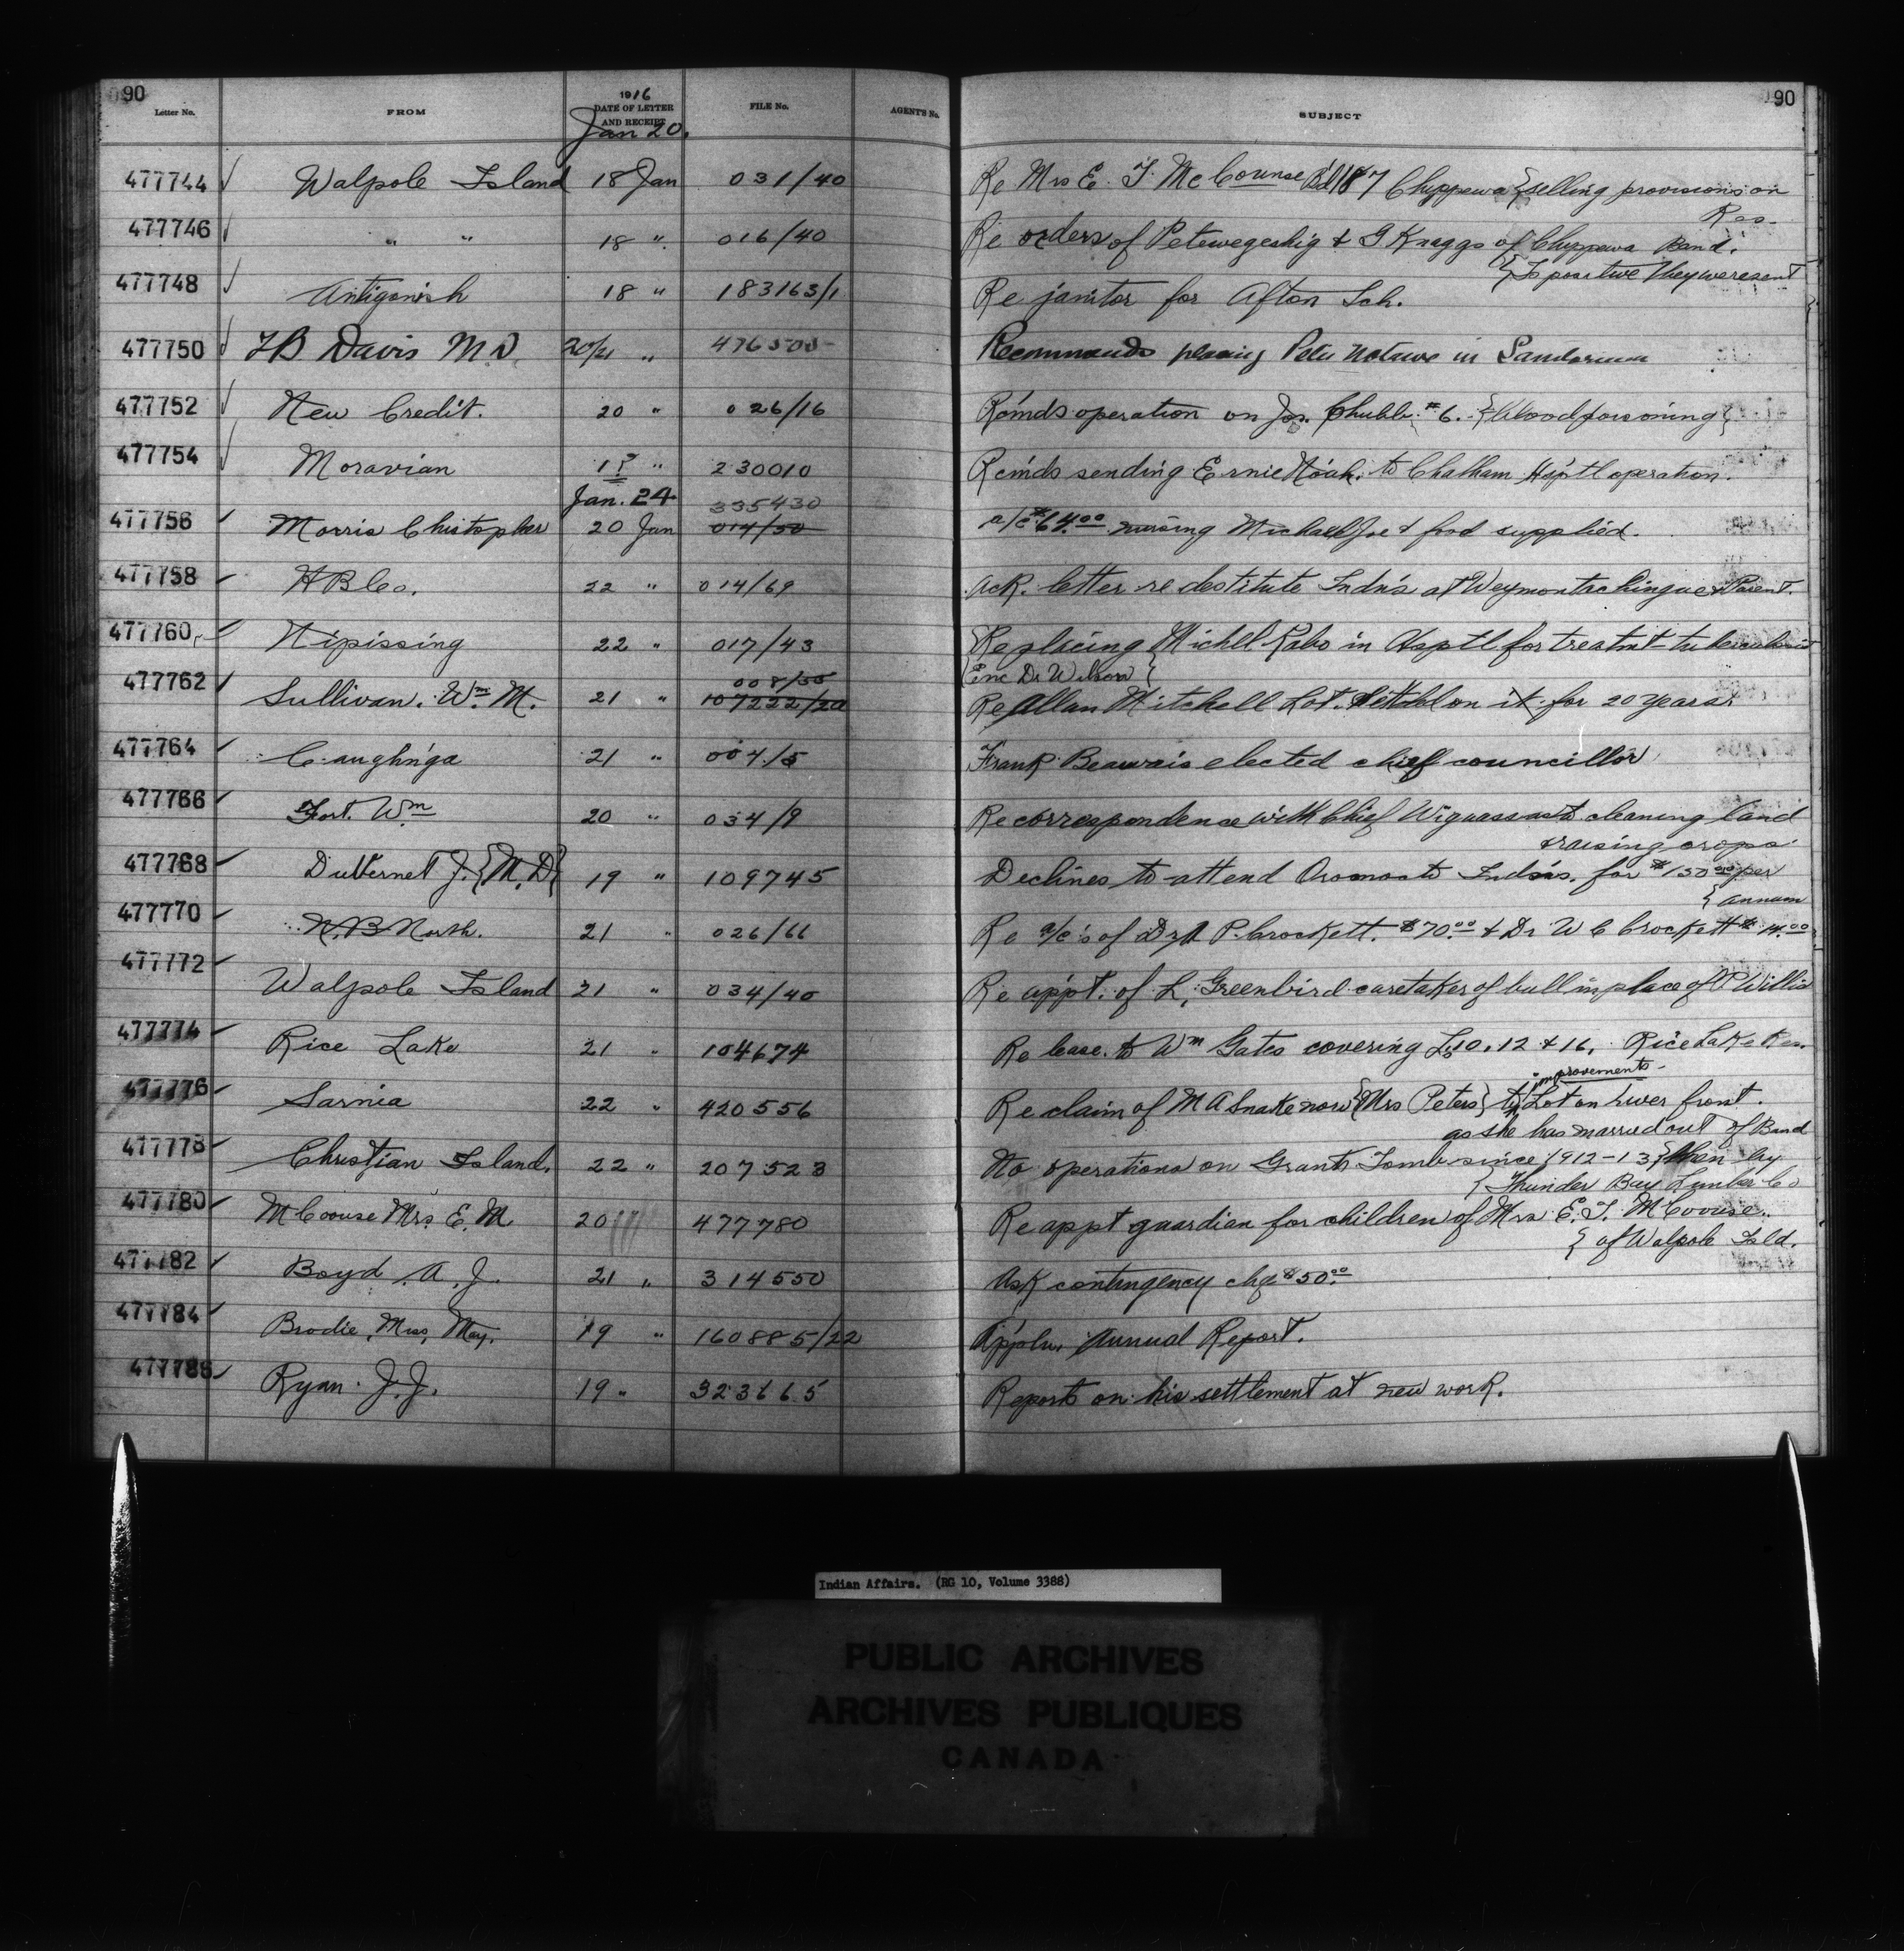 90
90
Letter No. FROM 1916 DATE OF LETTER AND RECEIPT FILE No. AGENT'S No. SUBJECT
Jan 20.
477744 Walpole Island 18 Jan 031/40 Re Mrs E. T. McCounse 187 Chippewa {selling provisions on
Res.
477746 " " 18 " 016/40 Re orders of Petewegeshig & G Knaggs of Chippewa Band.
{Is positive they were sent
477748 Antigonish 18 " 183163/1 Re janitor for Afton Sch.
477750 D 20/21 " Recommends placing Peter in
477752 New Credit. 20 " 026/16 R'c'mds operation on Jos. Chubb #6. {Blood poisoning}
477754 Moravian " 230010 Rc'mds sending Ernie Noah. to Chatham Hsp'tl operation.
Jan. 24
335430
477756 Morris Chistopher 20 Jan 014/50 a/c $64.00 nursing Michael Joe & food supplied.
477758 H B Co. 22 " 014/69 Ack. letter re destitute Indn's at Weymontachingue & Parent.
477760 Nipissing 22 " 017/43 Re placing Michl in Hsptl for treatmt
{Enc Dr Wilson}
008/
477762 Sullivan. Wm. M. 21 " 107222/20 Re Allan Mitchell Lot. Settled on it for 20 years.
477764 Caughn'ga 21 " 004/5 Frank Beauvais elected chief councillor
477766 Fort. Wm 20 " 034/9 Re correspondence with Chief cleaning land
& raising crops
477768 J. {M.D} 19 " 109745 Declines to attend Indn's. for $150.00 per
{annum
477770 N. B North. 21 " 026/66 Re a/c's of Dr A P. Crockett. $70.00 & Dr W C Crockett $14.00
477772 Walpole Island 21 " 034/40 Re app't. of L. Greenbird caretaker of bull in place of P Willis
477774 Rice Lake 21 " 104674 Re lease. to Wm Gates covering Ls 10, 12 & 16, Rice Lake Res.
improvements
477776 Sarnia 22 " 420556 Re claim of M A Snake now {Mrs Peters} to Lot on river front.
as she has married out of Band
477778 Christian Island. 22 " 207523 No operations on Grants Tomb since 1912-13 {then by
{Thunder Bay Lumber Co
477780 McCoouse Mrs. E. M. 20 477780 Re appt guardian for children of Mrs E. T. McCoouse.
{of Walpole Isld.
477782 Boyd. A. J. 21 " 314550 Ask contingency chq $50.00
477784 Brodie, Miss, May. 19 " 160885/22 App'ln. Annual Report.
477786 Ryan. J. J. 19 " 323665 Reports on his settlement at new work.
Indian Affairs. (RG 10, Volume 3388)
PUBLIC ARCHIVES
ARCHIVES PUBLIQUES
CANADA